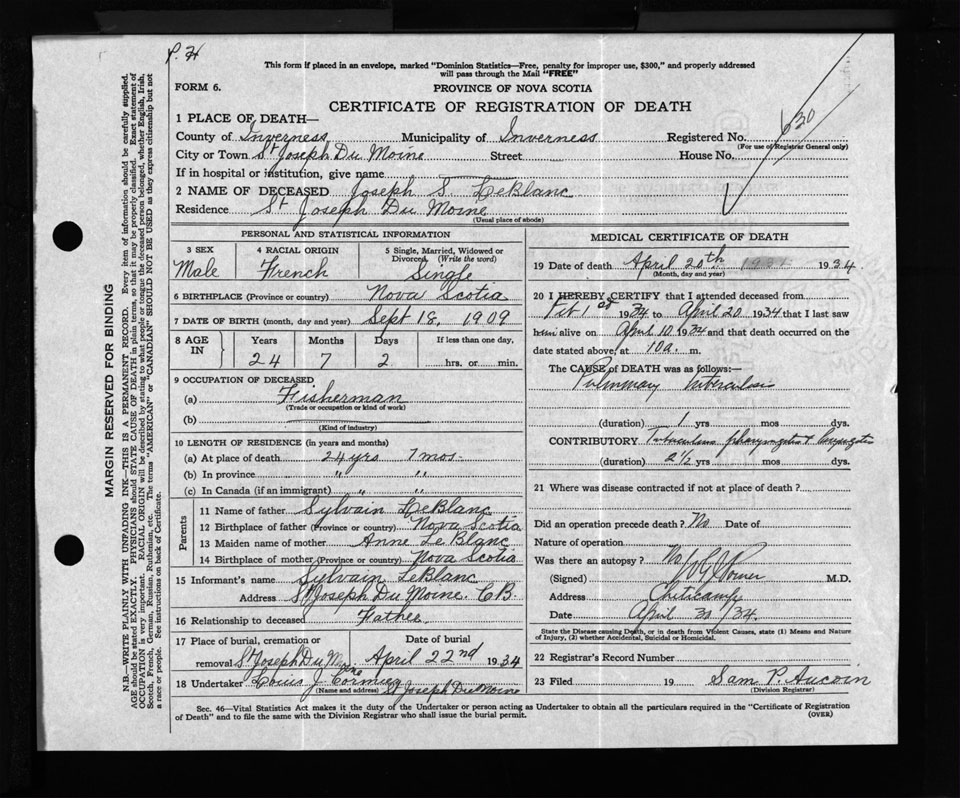 P. H
This form if placed in an envelope, marked "Dominion Statistics—Free, penalty for improper use, $300," and properly addressed
will pass through the Mail "FREE"
FORM 6. PROVINCE OF NOVA SCOTIA
CERTIFICATE OF REGISTRATION OF DEATH
630
1 PLACE OF DEATH—
County of Inverness Municipality of Inverness Registered No.
(For use of Registrar General only)
City or Town St Joseph Du Moine Street House No.
If in hospital or institution, give name
2 NAME OF DECEASED Joseph S. LeBlanc
Residence St Joseph Du Moine
(Usual place of abode)
PERSONAL AND STATISTICAL INFORMATION
3 SEX 4 RACIAL ORIGIN 5 Single, Married, Widowed or
Divorced (Write the word)
Male French Single
6 BIRTHPLACE (Province or country) Nova Scotia
7 DATE OF BIRTH (month, day and year) Sept 18, 1909
8 AGE IN Years Months Days If less than one day,
24 7 2 hrs. or min.
9 OCCUPATION OF DECEASED
(a) Fisherman
(Trade or occupation or kind of work)
(b)
(Kind of industry)
10 LENGTH OF RESIDENCE (in years and months)
(a) At place of death 24 yrs 7 mos
(b) In province " "
(c) In Canada (if an immigrant) " "
Parents
11 Name of father Sylvain LeBlanc
12 Birthplace of father (Province or country) Nova Scotia
13 Maiden name of mother Anne Le Blanc
14 Birthplace of mother (Province or country) Nova Scotia
15 Informant's name Sylvain LeBlanc
Address St Joseph Du Moine. C B.
16 Relationship to deceased Father
17 Place of burial, cremation or Date of burial
removal St Joseph Du Moine April 22nd 1934
18 Undertaker Louis J. Cormier
(Name and address) St Joseph Du Moine
MEDICAL CERTIFICATE OF DEATH
19 Date of death April 20th 1934 1934
(Month, day and year)
20 I HEREBY CERTIFY that I attended deceased from
Feb 1st 1934 to April 20 1934 that I last saw
him alive on April 10 1934 and that death occurred on
date stated above, at 10 a. m.
The CAUSE OF DEATH was as follows:—
Pulmonary tuberculosis
(duration) 1 yrs mos dys.
CONTRIBUTORY Tuberculous pharyngitis & laryngitis
(duration) 2½ yrs mos dys.
21 Where was disease contracted if not at place of death?
Did an operation precede death? No Date of
Nature of operation
Was there an autopsy? No
(Signed) M.D.
Address Cheticamp
Date April 30/34.
State the Disease causing Death, or in death from Violent Causes, state (1) Means and Nature
of Injury, (2) whether Accidental, Suicidal or Homicidal.
22 Registrar's Record Number
23 Filed 19 Sam P. Aucoin
(Division Registrar)
Sec. 46—Vital Statistics Act makes it the duty of the Undertaker or person acting as Undertaker to obtain all the particulars required in the "Certificate of Registration
of Death" and to file the same with the Division Registrar who shall issue the burial permit. (OVER)
MARGIN RESERVED FOR BINDING
N.B.—WRITE PLAINLY WITH UNFADING INK—THIS IS A PERMANENT RECORD. Every item of information should be carefully supplied.
AGE should be stated EXACTLY. PHYSICIANS should STATE CAUSE OF DEATH in plain terms, so that it may be properly classified. Exact statement of
OCCUPATION is very important. RACIAL ORIGIN will be described by stating to what people or tongue the deceased person belonged, whether English, Irish,
Scotch, French, German, Russian, Ruthenian, etc. The terms "AMERICAN" or "CANADIAN" SHOULD NOT BE USED as they express citizenship but not
a race or people. See instructions on back of Certificate.